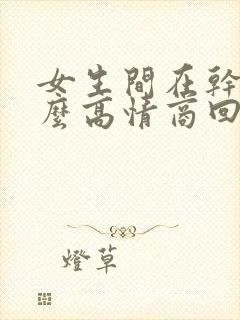 女生間在幹
麼高情商回
燈草